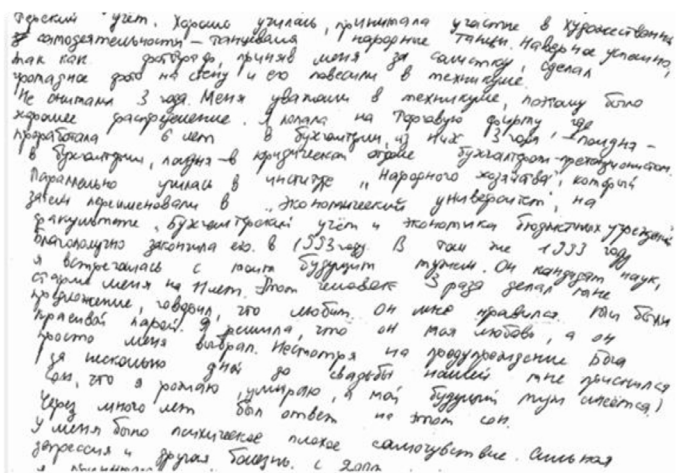 терский учёт. Хорошо училась, принимала участие в художественной
самодеятельности – танцевала народные танцы. Наверное успешно,
так как фотограф, приняв меня за солистку, сделал
фото на сцену и его повесили в техникуме.
3 года. Меня уважали в техникуме, поэтому было
хорошее распределение. Я попала на торговую фирму, где
проработала 6 лет в бухгалтерии, из них 3 года –
в бухгалтерии, в юридическом отделе бухгалтером-претензионистом.
Параллельно училась в институте „Народного хозяйства", который
затем переименовали в „Экономический университет", на
факультете „Бухгалтерский учёт и экономика бюджетных учреждений
Благополучно закончила его в 1993 году. В том же 1993 году
я встречалась с моим будущим мужем. Он кандидат наук,
старше меня на 11 лет. Этот человек 3 раза делал мне
предложение, говорил, что любит. Он мне нравился. Мы были
красивой парой. Я решила, что он моя любовь, а он
просто меня выбрал. Несмотря на предупреждение Бога
за несколько дней до свадьбы нашей мне приснился
сон, что я рожаю, умираю, а мой будущий муж смеётся)
Через много лет был ответ на этот сон.
У меня было психическое плохое самочувствие. Сильная
депрессия и другая болезнь. с